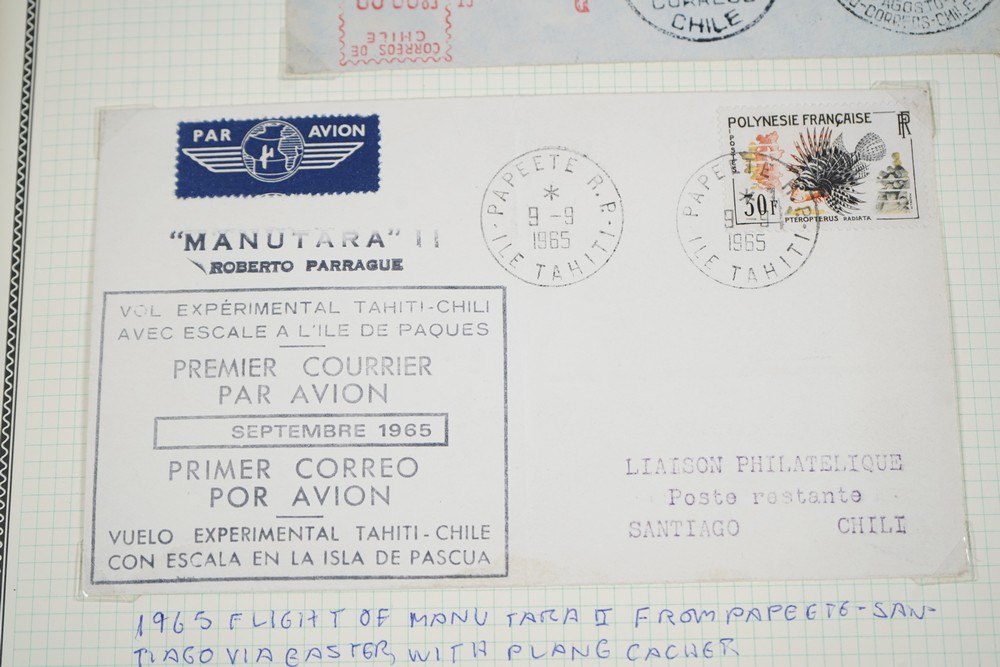 CORREOS DE
CHILE
CORREOS
CHILE
AGOSTO
CORREOS-CHILE
PAR AVION
POLYNESIE FRANÇAISE
RF
POSTES
30F
PTEROPTERUS RADIATA
PAPEETE R.P.
9-9
1965
ILE TAHITI
PAPEETE R.P.
9-9
1965
ILE TAHITI
"MANUTARA" II
ROBERTO PARRAGUE
VOL EXPÉRIMENTAL TAHITI-CHILI
AVEC ESCALE A L'ILE DE PAQUES
PREMIER COURRIER
PAR AVION
SEPTEMBRE 1965
PRIMER CORREO
POR AVION
VUELO EXPERIMENTAL TAHITI-CHILE
CON ESCALA EN LA ISLA DE PASCUA
LIAISON PHILATELIQUE
Poste restante
SANTIAGO CHILI
1965 FLIGHT OF MANU TARA II FROM PAPEETE-SAN-
TIAGO VIA EASTER, WITH PLANE CACHER